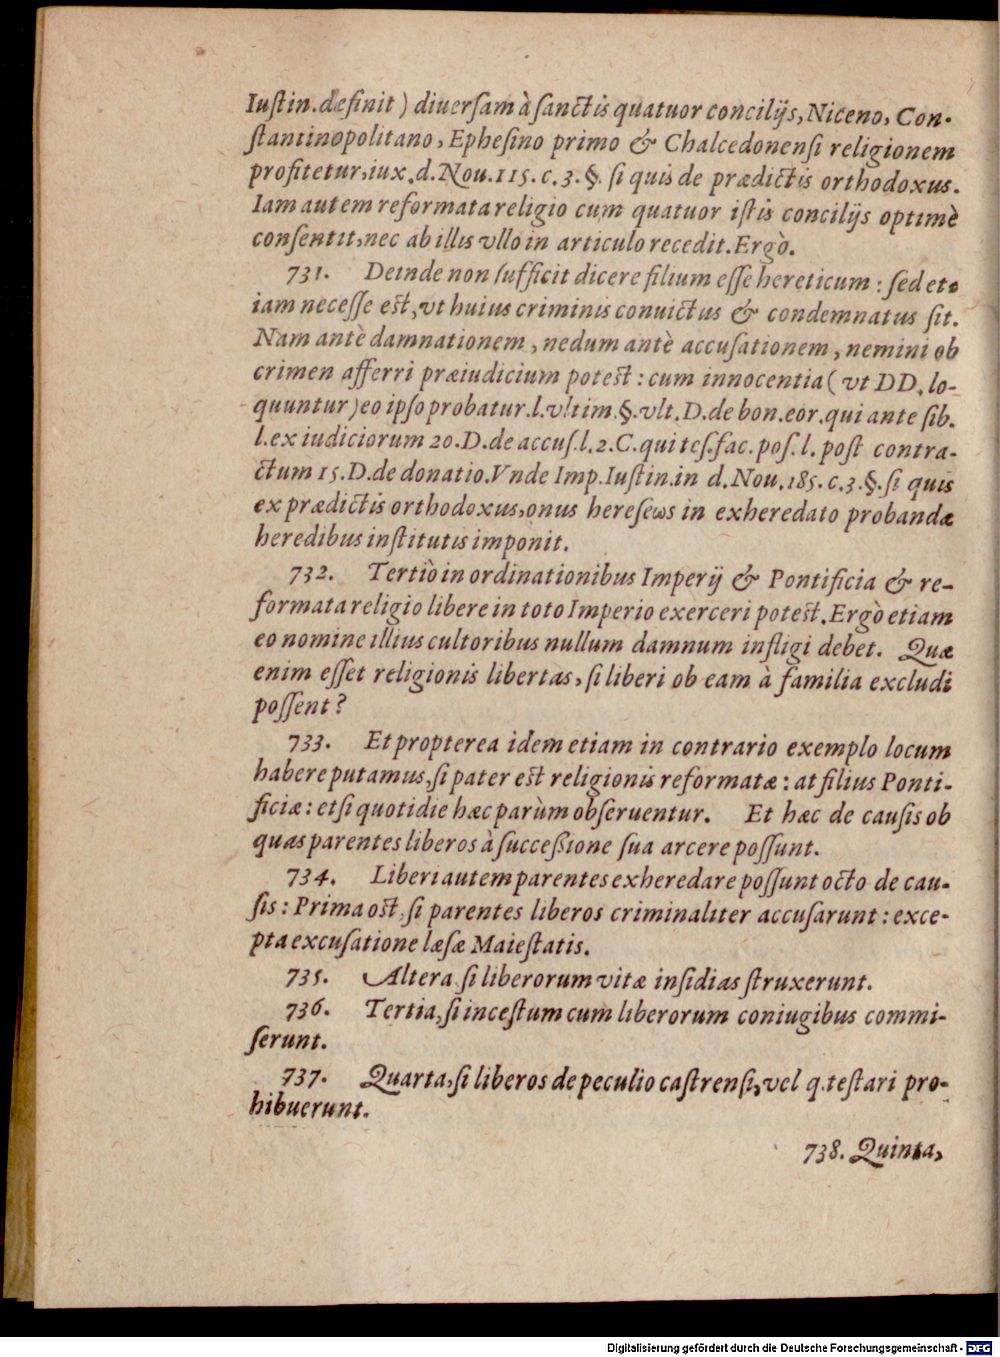 Iuſtin. definit) diuerſam à ſanctis quatuor concilijs, Niceno, Con-
ſtantinopolitano, Epheſino primo & Chalcedonenſi religionem
profitetur, iux. d. Nou. 115. c. 3. §. ſi quis de prædictis orthodoxus.
Iam autem reformata religio cum quatuor iſtis concilijs optimè
conſentit, nec ab illis vllo in articulo recedit. Ergò.
731. Deinde non ſufficit dicere filium eſſe hereticum: ſed et-
iam neceſſe eſt, vt huius criminis conuictus & condemnatus ſit.
Nam antè damnationem, nedum antè accuſationem, nemini ob
crimen afferri præiudicium poteſt: cum innocentia (vt DD. lo-
quuntur) eo ipſo probatur. l. vltim. §. vlt. D. de bon. eor. qui ante ſib.
l. ex iudiciorum 20. D. de accuſ. l. 2. C. qui teſ. fac. poſ. l. poſt contra-
ctum 15. D. de donatio. Vnde Imp. Iuſtin. in d. Nou. 185. c. 3. §. ſi quis
ex prædictis orthodoxus, onus hereſeωs in exheredato probandæ
heredibus inſtitutis imponit.
732. Tertiò in ordinationibus Imperij & Pontificia & re-
formata religio libere in toto Imperio exerceri poteſt. Ergò etiam
eo nomine illius cultoribus nullum damnum infligi debet. Quæ
enim eſſet religionis libertas, ſi liberi ob eam à familia excludi
poſſent?
733. Et propterea idem etiam in contrario exemplo locum
habere putamus, ſi pater eſt religionis reformatæ: at filius Ponti-
ficiæ: etſi quotidie hæc parùm obſeruentur. Et hæc de cauſis ob
quas parentes liberos à ſucceßione ſua arcere poſſunt.
734. Liberi autem parentes exheredare poſſunt octo de cau-
ſis: Prima oſt, ſi parentes liberos criminaliter accuſarunt: exce-
pta excuſatione læſæ Maieſtatis.
735. Altera ſi liberorum vitæ inſidias ſtruxerunt.
736. Tertia, ſi inceſtum cum liberorum coniugibus commi-
ſerunt.
737. Quarta, ſi liberos de peculio caſtrenſi, vel q. teſtari pro-
hibuerunt.
738. Quinta,
Digitalisierung gefördert durch die Deutsche Forschungsgemeinschaft - DFG